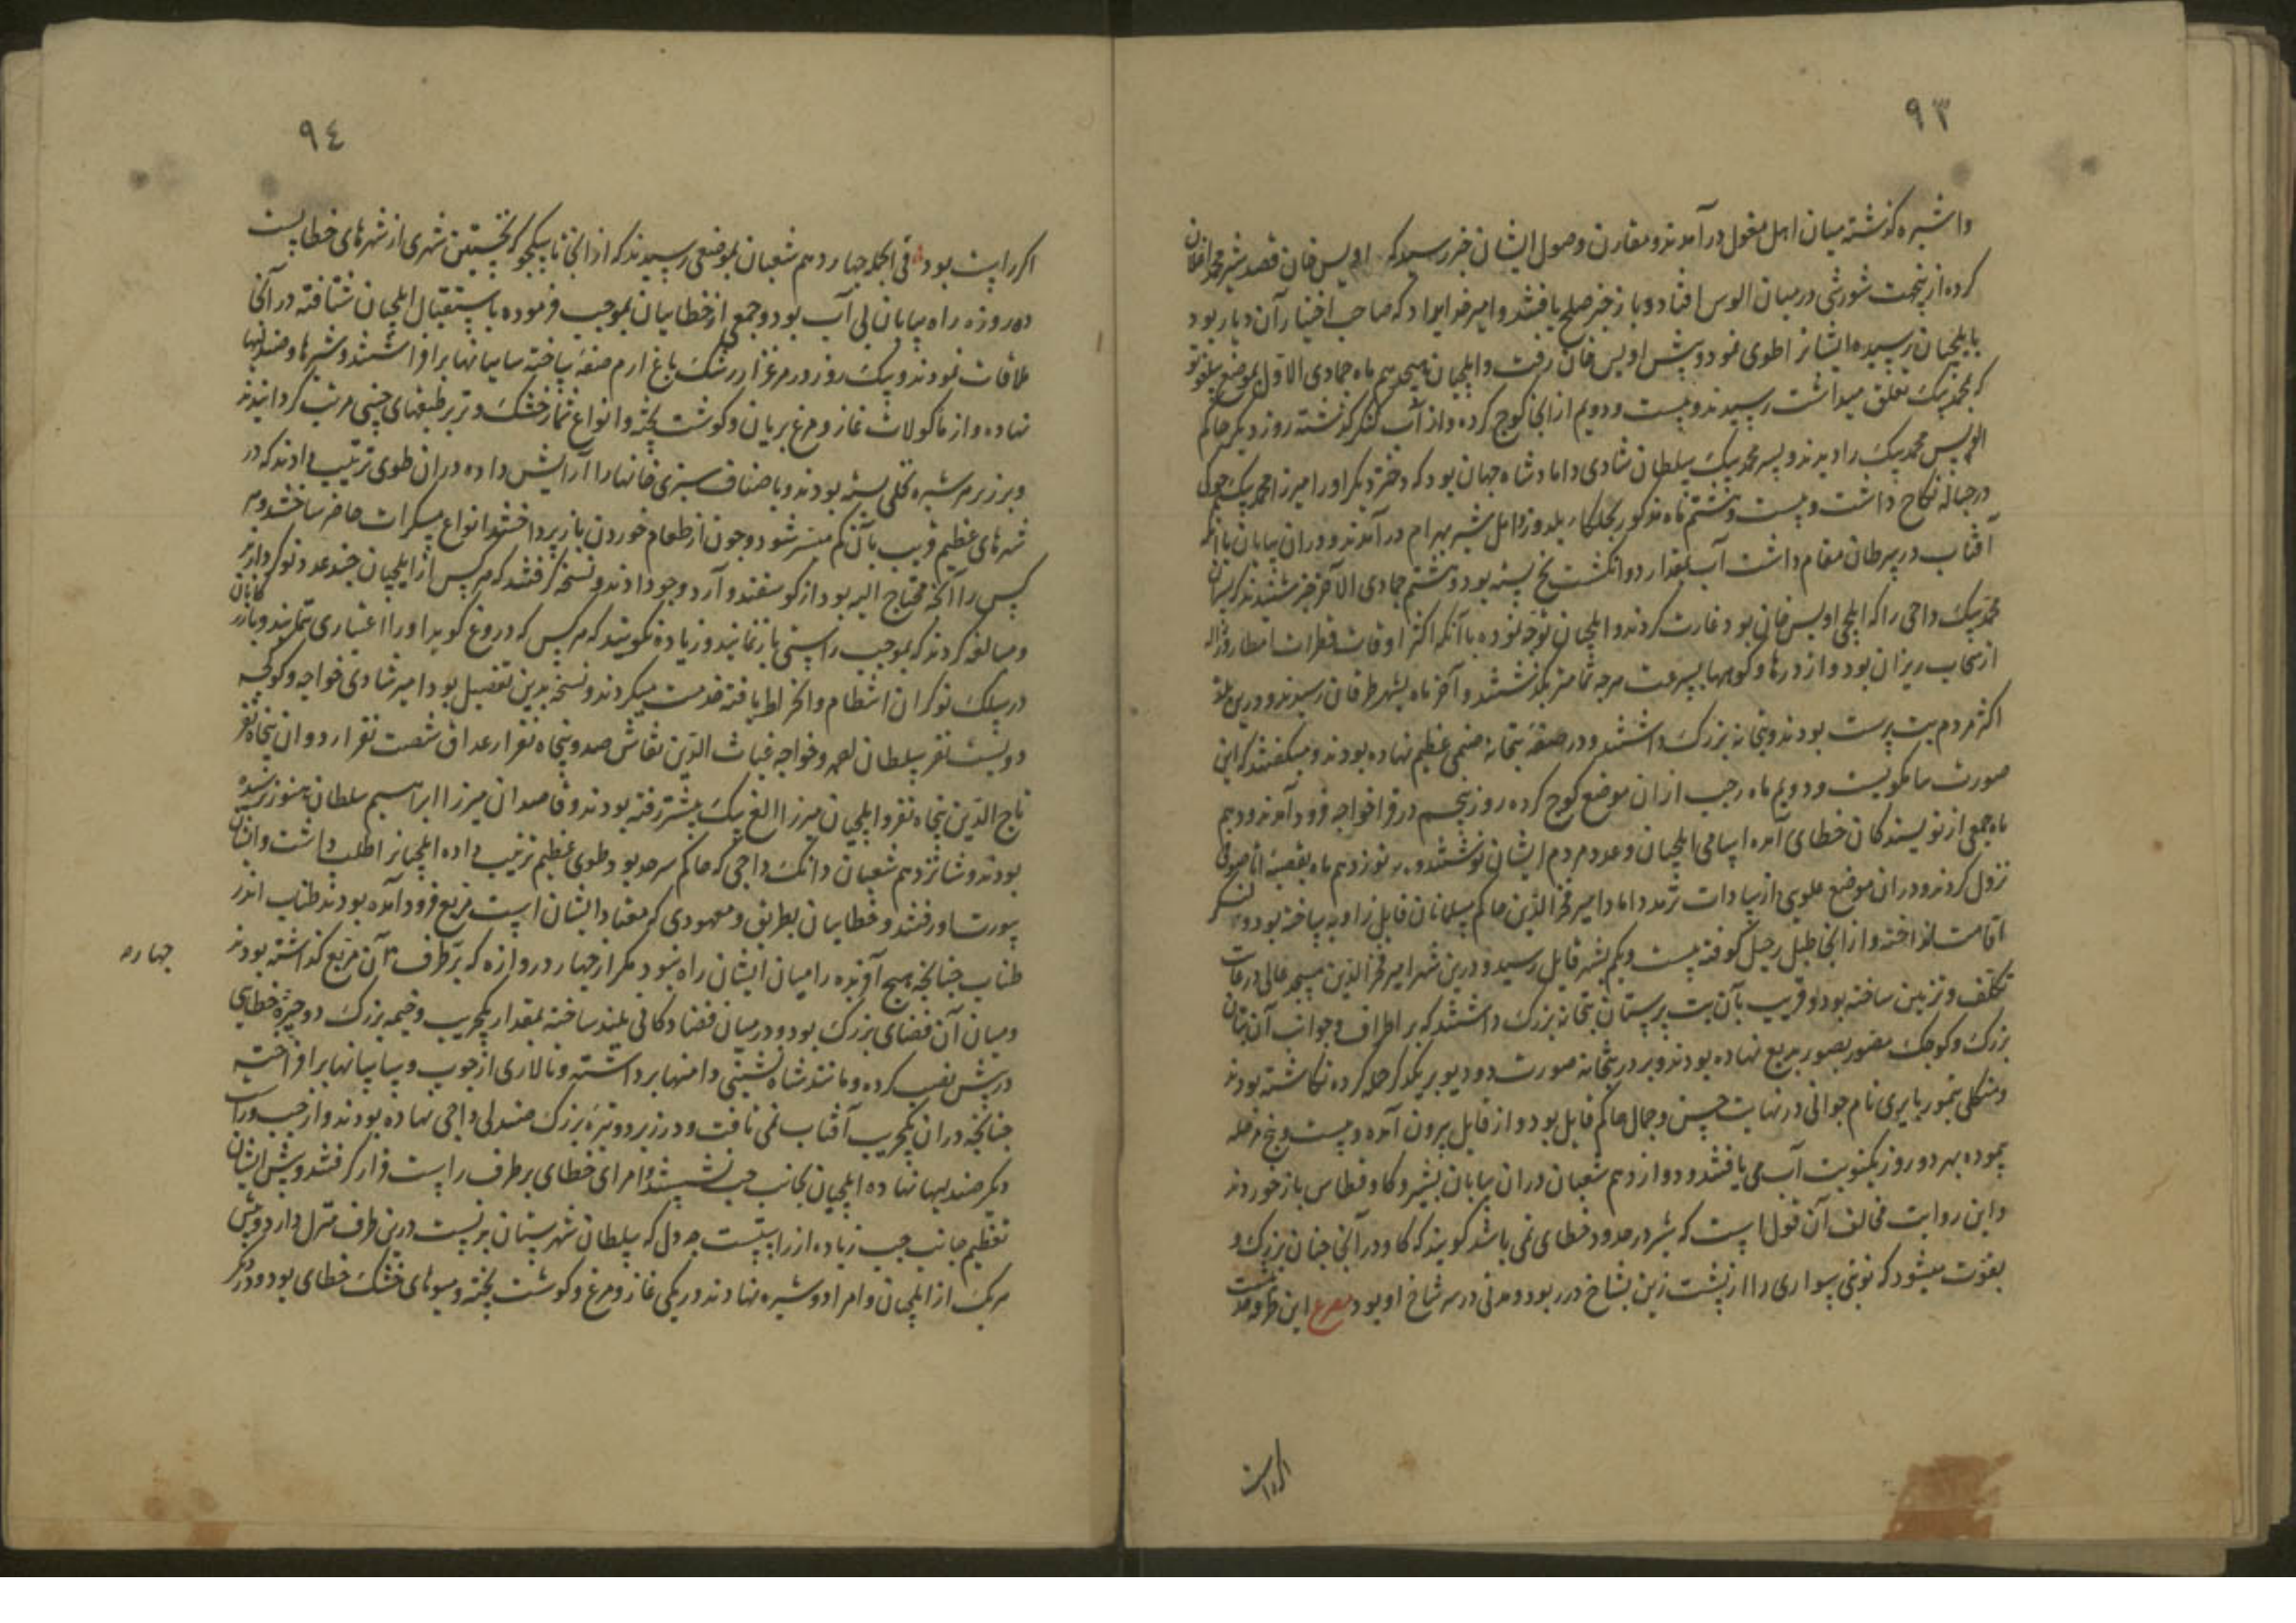 ۹۳
واشپره گذشته میان اهل مغول درآمدند و مقارن وصول ایشان خبر رسید که اویس خان قصد شیر محمد اغلان
کرده ازینجهت شورشی در میان الوس افتاد و باز خبر صلح یافتند و امیر خدایداد که صاحب اختیار آن دیار بود
بایلچیان رسیده ایشانرا طوی نمود و پیش اویس خان رفت و ایلچیان هیجدهم ماه جمادی الاول بموضع
که بمحمد بیک تعلق میداشت رسیدند و بیست و دویم از انجا کوچ کرده و از آب کنکر گذشته روز دیگر حاکم
محمد بیک را دیدند و پسر محمد بیک سلطان شادی داماد شاه جهان بود که دختر دیگر او را میرزا محمد جوکی
در حباله نکاح داشت و بیست و هشتم ماه مذکور بجلکاء یلدوز و ایل شیر بهرام درآمدند و در ان بیابان با آنکه
آفتاب در سرطان مقام داشت آب بمقدار دو انکشت یخ بسته بود و هشتم جمادی الآخر خبر شنیدند که پسران
محمد بیک داجی را که ایلچی اویس خان بود غارت کردند و ایلچیان توجه نموده با آنکه اکثر اوقات قطرات امطار و ژاله
از سحاب ریزان بود و از درها و کوهها بسرعت هرچه تمامتر بگذشتند و آخر ماه بشهر طرفان رسیدند و درین بلده
اکثر مردم بت پرست بودند و بتخانه بزرگ داشتند و در صفهٔ بتخانه صنمی عظیم نهاده بودند و میگفتند که این
صورت شاکمونیست و دویم ماه رجب از ان موضع کوچ کرده روز پنجم در قراخواجه فرود آمدند و دهم
ماه جمعی از نویسندکان خطای آمده اسامی ایلچیان و عدد مردم ایشان نوشتند و نوزدهم ماه بقصبهٔ اتا صوفی
نزول کردند و در ان موضع علوی از سادات ترمد داماد امیر فخرالدین حاکم مسلمانان قابل زاویه ساخته بود و لنگر
اقامت انداخته و از انجا طبل رحیل کوفته بیست و یکم بشهر قابل رسید و درین شهر امیر فخرالدین مسجد عالی در غایت
تکلف و تزیین ساخته بود و قریب بآن بت پرستان بتخانه بزرگ داشتند که بر اطراف و جوانب آن بتان
بزرگ و کوچک مصور بصور بدیع نهاده بودند و بر در بتخانه صورت دو دیو بر یکدگر حمله کرده نگاشته بودند
و منکلی تیمور بایری نام جوانی در نهایت حسن و جمال حاکم قابل بود و از قابل بیرون آمده و بیست و پنج مرحله
پیموده بهر دو روز یکنوبت آب می یافتند و دوازدهم شعبان در ان بیابان بشیر و کاو قطاس باز خوردند
و این روایت مخالف آن قول است که شیر در حدود خطای نمی باشد گویند که کاو در آنجا چنان بزرگ و
بقوت میشود که نوبتی سواری را از پشت زین بشاخ در ربود و مدتی در سر شاخ او بود مصرع این طرفه حدیث
اگر راست
۹٤
اگر راست بود فی الجمله چهاردهم شعبان بموضعی رسیدند که از انجا تا سکجو که نخستین شهری از شهرهای خطاست
ده روزه راه بیابان بی آب بود و جمعی از خطاییان بموجب فرموده باستقبال ایلچیان شتافته در آنجا
ملاقات نمودند و یک روز در مرغزار رشک باغ ارم صفه ساخته سایبانها برافراشتند و شیرها و صندلیها
نهاده و از ماکولات غاز و مرغ بریان و گوشت پخته و انواع ثمار خشک و تر بر طبقهای چینی مرتب گردانیدند
و بر زبر هر شیره نخلی بسته بودند و باصناف سبزی خانها را آرایش داده در ان طوی ترتیب دادند که در
شهرهای عظیم قریب بآن کم میسر شود و چون از طعام خوردن باز پرداختند انواع مسکرات حاضر ساختند و هر
کس را آنچه محتاج الیه بود از گوسفند و آرد و جو دادند و نسخه گرفتند که هر کس از ایلچیان چند عدد نوکر دارند
و مبالغه کردند که بموجب راستی باز نمایند و زیاده نگویند که هر کس که دروغ گوید او را اعتباری نماند و بازرکانان
در سلک نوکران انتظام و انخراط یافته خدمت میکردند و نسخه بدین تفصیل بود امیر شادی خواجه و کوکجه
دویست نفر سلطان احمد و خواجه غیاث الدین نقاش صد و پنجاه نفر ارغداق شصت نفر اردوان پنجاه نفر
تاج الدین پنجاه نفر و ایلچیان میرزا الغ بیک پیشتر رفته بودند و قاصدان میرزا ابراهیم سلطان هنوز نرسیده
بودند و شانزدهم شعبان دانک داجی که حاکم سرحد بود طوی عظیم ترتیب داده ایلچیانرا طلب داشت و ایشان
بیورت او رفتند و خطاییان بطریق و معهودی که معتاد ایشان است مربع فرود آمده بودند طناب اندر
طناب چنانچه هیچ آفریده را میان ایشان راه نبود مگر از چهار دروازه که بر طرف آن مربع گذاشته بودند
چهاره
و میان آن فضای بزرگ بود و در میان فضا دکانی بلند ساخته بمقدار یکجریب و خیمه بزرگ دو چیزهٔ خطایی
در پیش نصب کرده و مانند شاه نشینی دامنها برداشته و تالاری از چوب و سایبانها برافراخته
چنانچه در ان یکجریب آفتاب نمی تافت و در زیر دو تیرهٔ بزرگ صندلی داجی نهاده بودند و از چپ و راست
دیگر صندلیها نهاده ایلچیان بجانب چپ نشستند و امرای خطای بر طرف راست قرار گرفتند و پیش ایشان
تعظیم جانب چپ زیاده از راستست چه دل که سلطان شهرستان بدنست درین طرف منزل دارد و پیش
هریک از ایلچیان و امرا دو شیره نهادند در یکی غاز و مرغ و گوشت پخته و میوهای خشک خطای بود و در دیگر